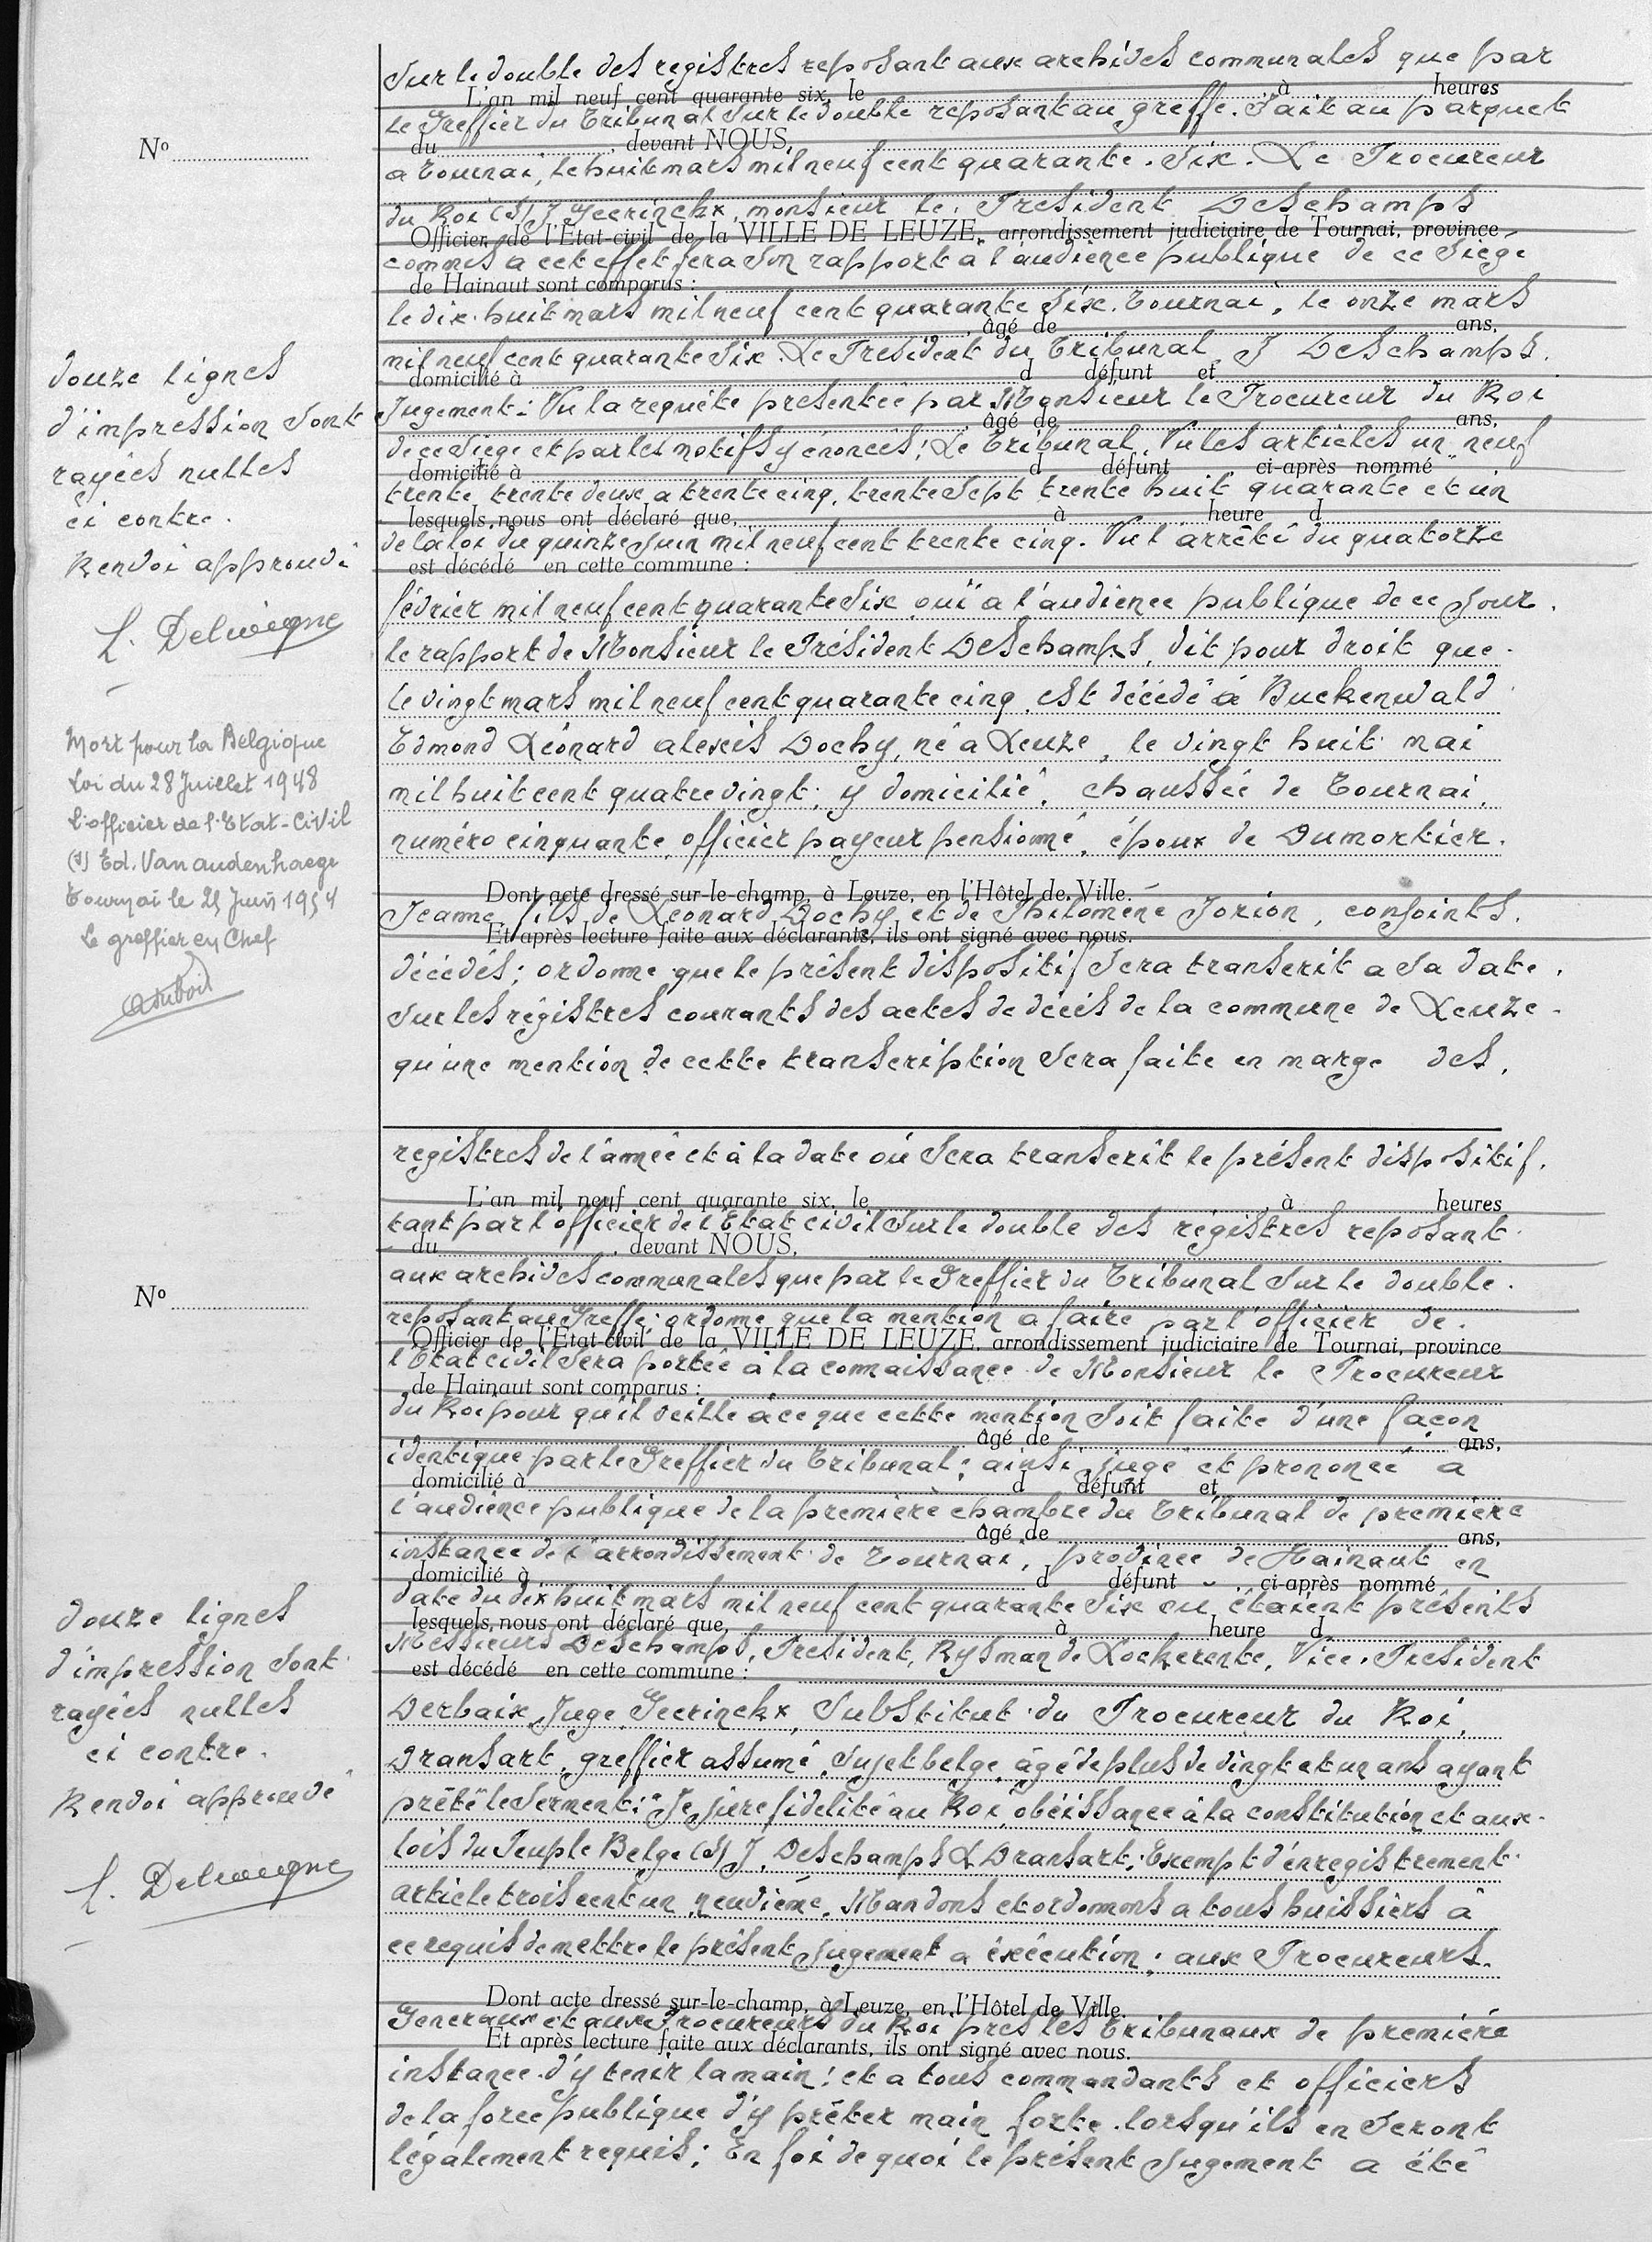 Sur le double des registres reposant aux archives communales que par
L'an mil neuf cent quarante six, le à heures
le Greffier du Tribunal Sur le double reposant au greffe. Fait au parquet
du , devant NOUS,
Nº
a Tournai, le huit mars mil neuf cent quarante. Six. Le Procureur
du Roi (S) J Geerinckx, monsieur le, President Deschamps
Officier de l'Etat-civil de la VILLE DE LEUZE, arrondissement judiciaire de Tournai, province
commis a cet effet fera Son rapport a l'audience publique de ce Siège
de Hainaut sont comparus :
le dix. huit mars mil neuf cent quarante Six. Tournai, le onze mars
, âgé de ans,
mil neuf cent quarante Six. Le President du Tribunal J Deschamps.
domicilié à d défunt et
Jugement : Vu la requête présentée par Monsieur le Procureur du Roi
, âgé de ans,
de ce Siege et par les motifs y énoncés ; Le Tribunal, Vu les articles un neuf
domicilié à d défunt ci-après nommé
trente, trente deux, a trente cinq, trente Sept trente huit quarante et un
lesquels nous ont déclaré que, à heure d
de la loi du quinze Juin mil neuf cent trente cinq. Vu l'arrêté du quatorze
est décédé en cette commune :
février mil neuf cent quarante Six, ouï a l'audience publique de ce Jour.
le rapport de Monsieur le Président Deschamps, dit pour droit que.
le vingt mars mil neuf cent quarante cinq, est décédé à Buckenwald
Edmond Léonard alexis Dochy, né a Leuze, le vingt huit mai
mil huit cent quatre vingt, y domicilié, chaussée de Tournai,
numéro cinquante, officier payeur pensionné, époux de Dumortier.
Dont acte dressé sur-le-champ, à Leuze, en l'Hôtel de Ville.
Jeanne, fils de Léonard Dochy et de Philomène Jorion, conjoints.
Et après lecture faite aux déclarants, ils ont signé avec nous.
décédés ; ordonne que le présent dispositif Sera transcrit a Sa date.
Sur les régistres courants des actes de décès de la commune de Leuze.
qu'une mention de cette transcription Sera faite en marge des,
douze lignes
d'impression Sont
rayées nulles
ci contre.
Renvoi approuvé
L. Delwigne
Mort pour la Belgique
Loi du 28 Juillet 1948
L'officier de l'Etat-Civil
(s) Ed. Vanaudenhaege
Tournai le 25 Juin 1954
Le greffier en Chef
registres de l'année et à la date où Sera transcrit le présent dispositif.
L'an mil neuf cent quarante six, le à heures
tant par l'officier de l'Etat civil Sur le double des régistres reposant
du , devant NOUS,
aux archives communales que par le Greffier du Tribunal Sur le double.
Nº
reposant au Greffe ; ordonne que la mention a faire par l'officier de.
Officier de l'Etat-civil de la VILLE DE LEUZE, arrondissement judiciaire de Tournai, province
l'Etat civil Sera portée à la connaissance de Monsieur le Procureur
de Hainaut sont comparus :
du Roi pour qu'il veille à ce que cette mention Soit faite d'une façon
âgé de ans,
identique par le Greffier du Tribunal ; ainsi jugé et prononcé a
domicilié à d défunt et
l'audience publique de la première chambre du Tribunal de première
âgé de ans,
instance de l'arrondissement de Tournai, province de Hainaut en
domicilié à d défunt ci-après nommé
date du dix huit mars mil neuf cent quarante Six ou étaient présents
lesquels nous ont déclaré que, à heure d
Messieurs Deschamps, President, Rysman de Lockerente, Vice. President
est décédé en cette commune :
Derbaix, Juge, Geerinckx, Substitut du Procureur du Roi,
Dransart, greffier assumé, Sujet belge, âgé de plus de vingt et un ans ayant
prêté le Serment : "Je jure fidelité au Roi, obéissance à la constitution et aux.
lois du Peuple Belge (S) J. Deschamps & Dransart. Exempt d'enregistrement.
article trois cent un, neuvième. Mandons et ordonnons a tous huissiers à
ce requis de mettre le présent Jugement a éxécution ; aux Procureurs.
Dont acte dressé sur-le-champ, à Leuze, en l'Hôtel de Ville.
Generaux et aux Procureurs du Roi près les Tribunaux de première
Et après lecture faite aux déclarants, ils ont signé avec nous.
instance. d'y tenir la main ; et a tous commandants et officiers
de la force publique d'y prêter main forte. lorsqu'ils en Seront
légalement requis ; En foi de quoi le présent Jugement a été
douze lignes
d'impression Sont
rayées nulles
ci contre.
Renvoi approuvé
L. Delwigne